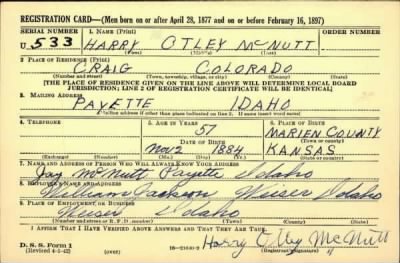 REGISTRATION CARD—(Men born on or after April 28, 1877 and on or before February 16, 1897)
SERIAL NUMBER 1. NAME (Print) ORDER NUMBER
U 533 HARRY OTLEY McNUTT
(First) (Middle) (Last)
2. PLACE OF RESIDENCE (Print)
CRAIG COLORADO
(Number and street) (Town, township, village, or city) (County) (State)
[THE PLACE OF RESIDENCE GIVEN ON THE LINE ABOVE WILL DETERMINE LOCAL BOARD
JURISDICTION; LINE 2 OF REGISTRATION CERTIFICATE WILL BE IDENTICAL]
3. MAILING ADDRESS
PAYETTE IDAHO
[Mailing address if other than place indicated on line 2. If same insert word same]
4. TELEPHONE 5. AGE IN YEARS 6. PLACE OF BIRTH
57 MARIEN COUNTY
DATE OF BIRTH (Town or county)
Nov 2 1884 KANSAS
(Exchange) (Number) (Mo.) (Day) (Yr.) (State or country)
7. NAME AND ADDRESS OF PERSON WHO WILL ALWAYS KNOW YOUR ADDRESS
Jay McNutt Payette Idaho
8. EMPLOYER'S NAME AND ADDRESS
William Jackson Weiser Idaho
9. PLACE OF EMPLOYMENT OR BUSINESS
Weiser Idaho
(Number and street or R. F. D. number) (Town) (County) (State)
I AFFIRM THAT I HAVE VERIFIED ABOVE ANSWERS AND THAT THEY ARE TRUE.
D. S. S. Form 1
(Revised 4-1-42) (over) Harry Otley McNutt
(Registrant's signature)